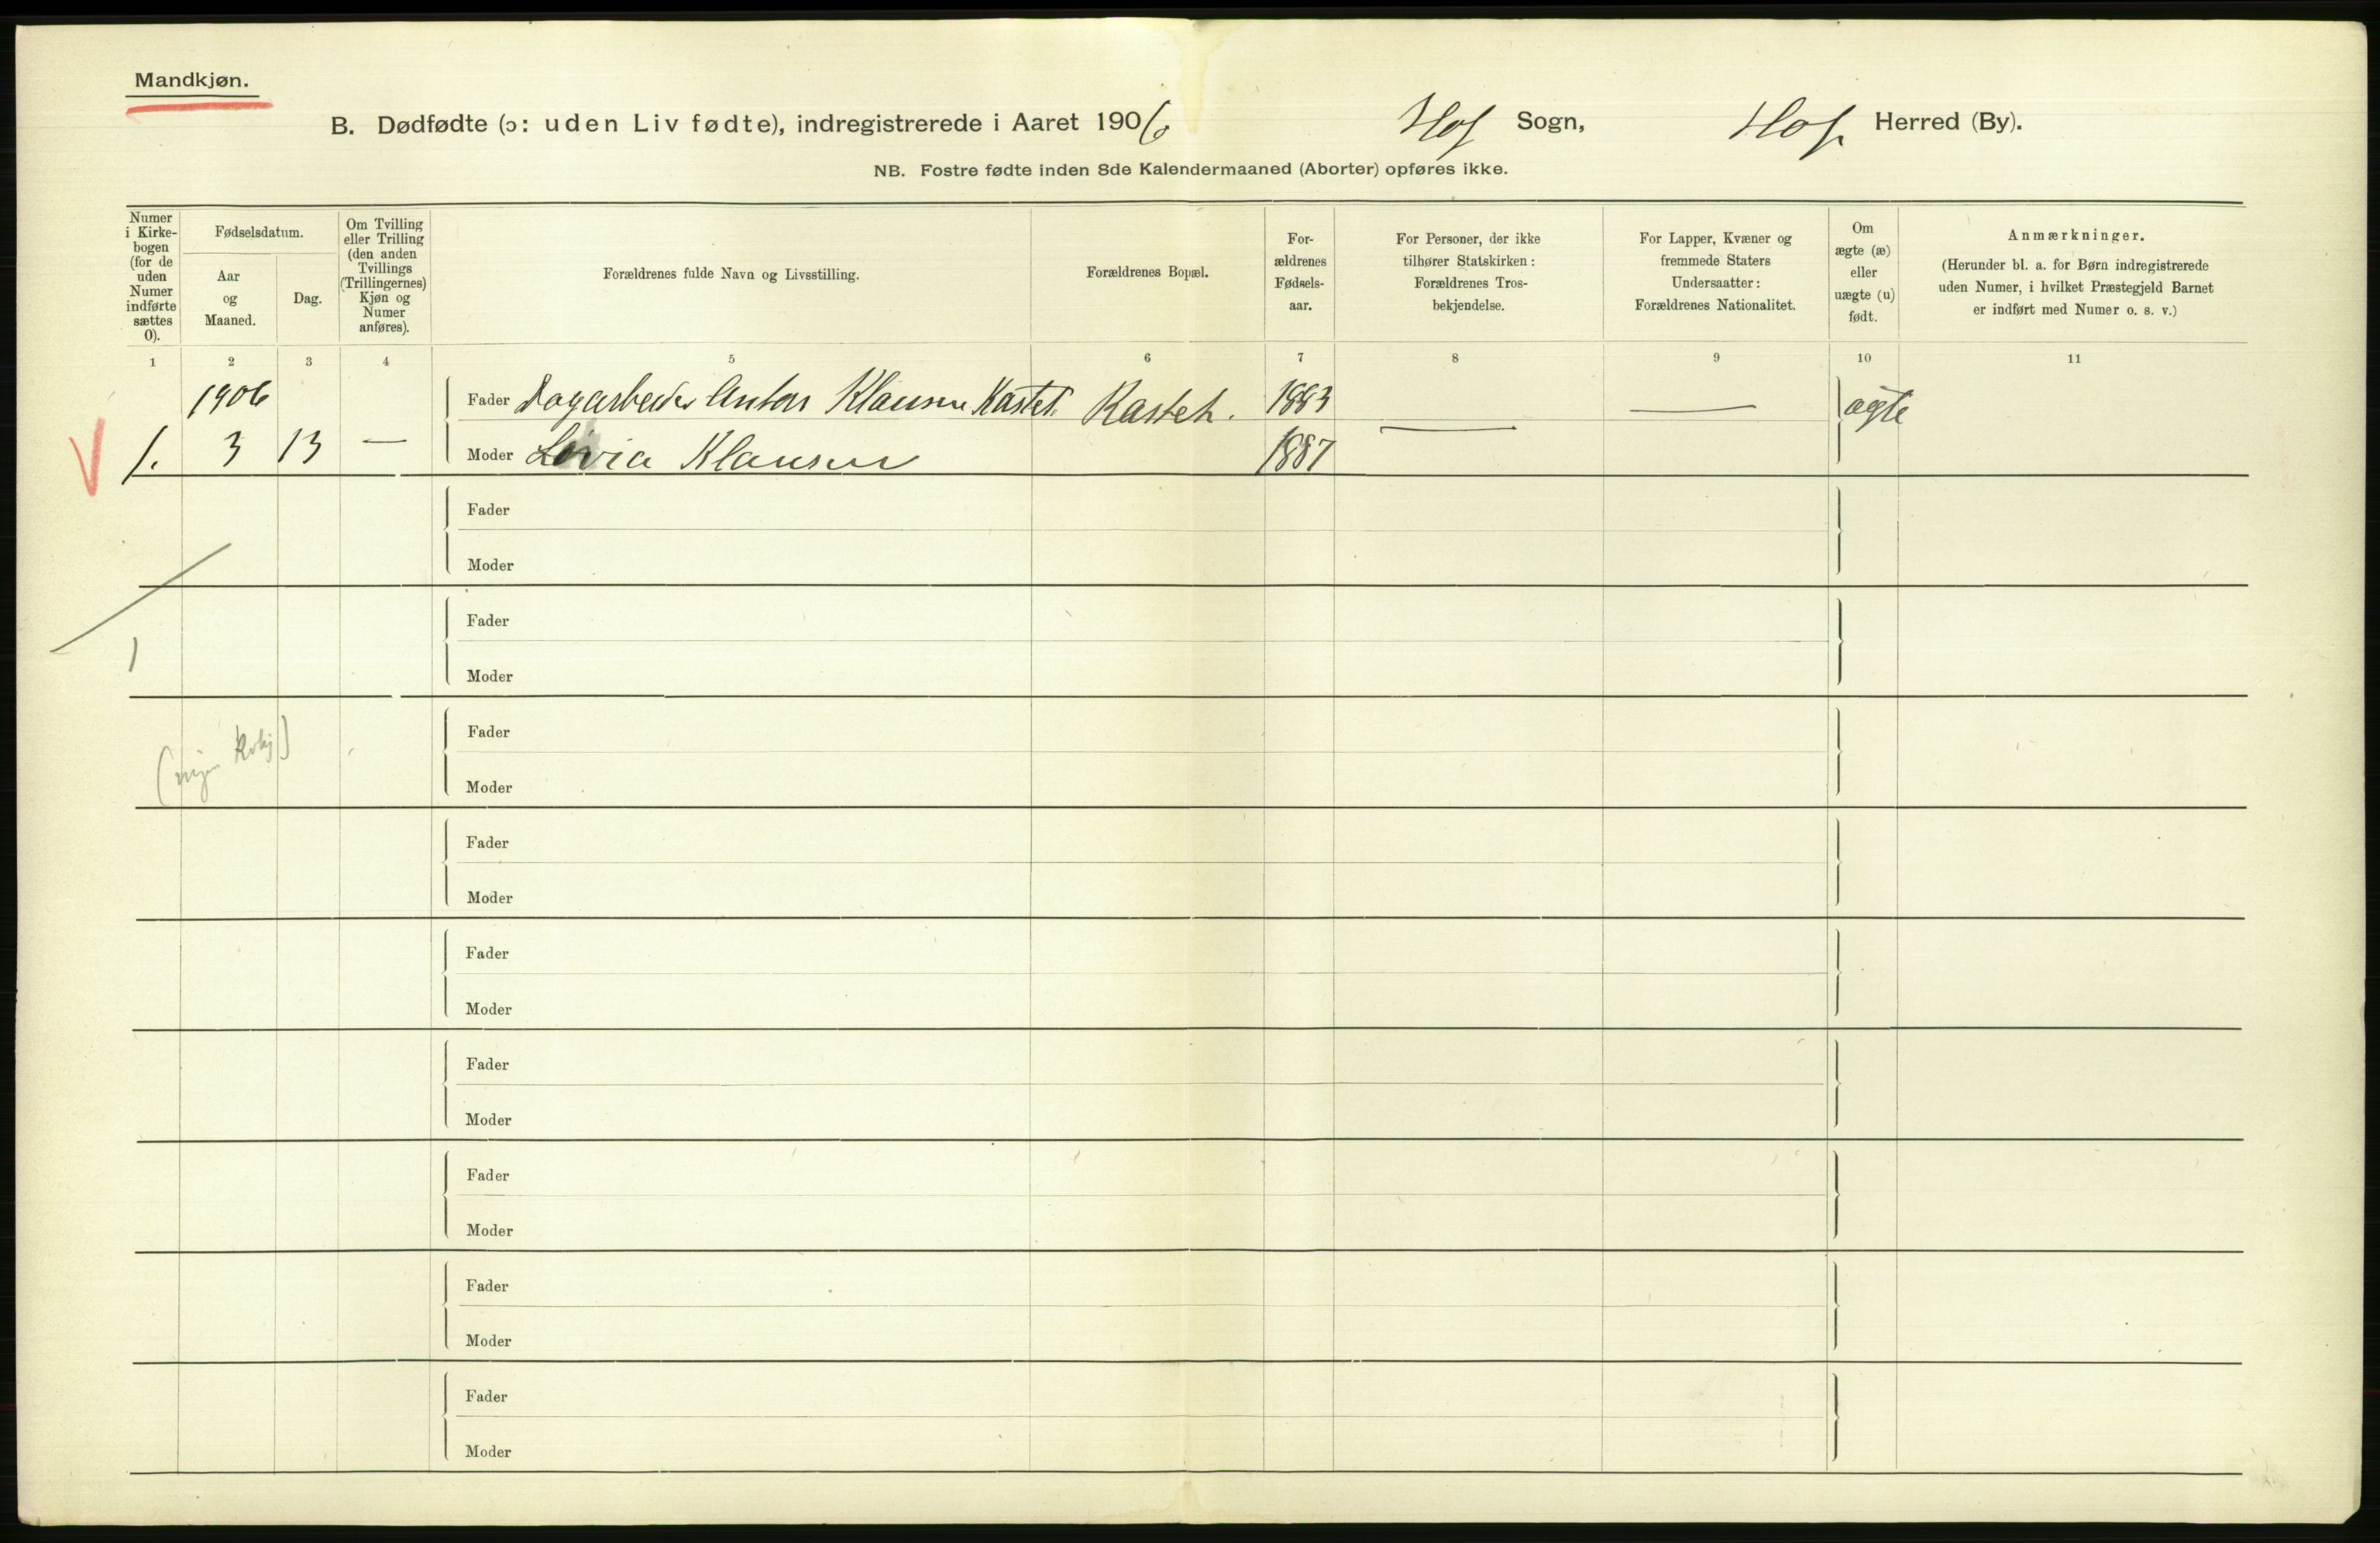 Mandkjøn.
B. Dødfødte (ɔ: uden Liv fødte), indregistrerede i Aaret 1906 Hof Sogn, Hof Herred (By).
NB. Fostre fødte inden 8de Kalendermaaned (Aborter) opføres ikke.
Numer
i Kirke-
bogen
(for de
uden
Numer
indførte
sættes
0).
Fødselsdatum.
Aar
og
Maaned.
Dag.
Om Tvilling
eller Trilling
(den anden
Tvillings
(Trillingernes)
Kjøn og
Numer
anføres).
Forældrenes fulde Navn og Livsstilling.
Forældrenes Bopæl.
For-
ældrenes
Fødsels-
aar.
For Personer, der ikke
tilhører Statskirken:
Forældrenes Tros-
bekjendelse.
For Lapper, Kvæner og
fremmede Staters
Undersaatter:
Forældrenes Nationalitet.
Om
ægte (æ)
eller
uægte (u)
født.
Anmærkninger.
(Herunder bl. a. for Børn indregistrerede
uden Numer, i hvilket Præstegjeld Barnet
er indført med Numer o. s. v.)
1 2 3 4 5 6 7 8 9 10 11
1906 Fader Dagarbeider Anton Klausen Kastet. Kastet. 1883 — — ægte
1. 3 13 — Moder Lovia Klausen 1887
Fader
Moder
Fader
1 Moder
Fader
Moder
Fader
Moder
Fader
Moder
Fader
Moder
Fader
Moder
Fader
Moder
Fader
Moder